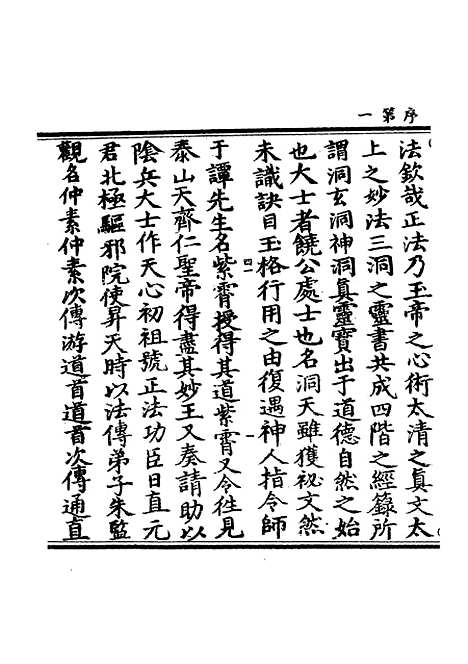 序第一
法欽哉正法乃玉帝之心術太清之真文太
上之妙法三洞之靈書共成四階之經籙所
謂洞玄洞神洞真靈寶出于道德自然之始
也大士者饒公處士也名洞天雖獲祕文然
未識訣目玉格行用之由復遇神人指令師
于譚先生名紫霄授得其道紫霄又令往見
泰山天齊仁聖帝得盡其妙王又奏請助以
陰兵大士作天心初祖號正法功臣日直元
君北極驅邪院使昇天時以法傳弟子朱監
觀名仲素仲素次傳游道首道首次傳通直
四二